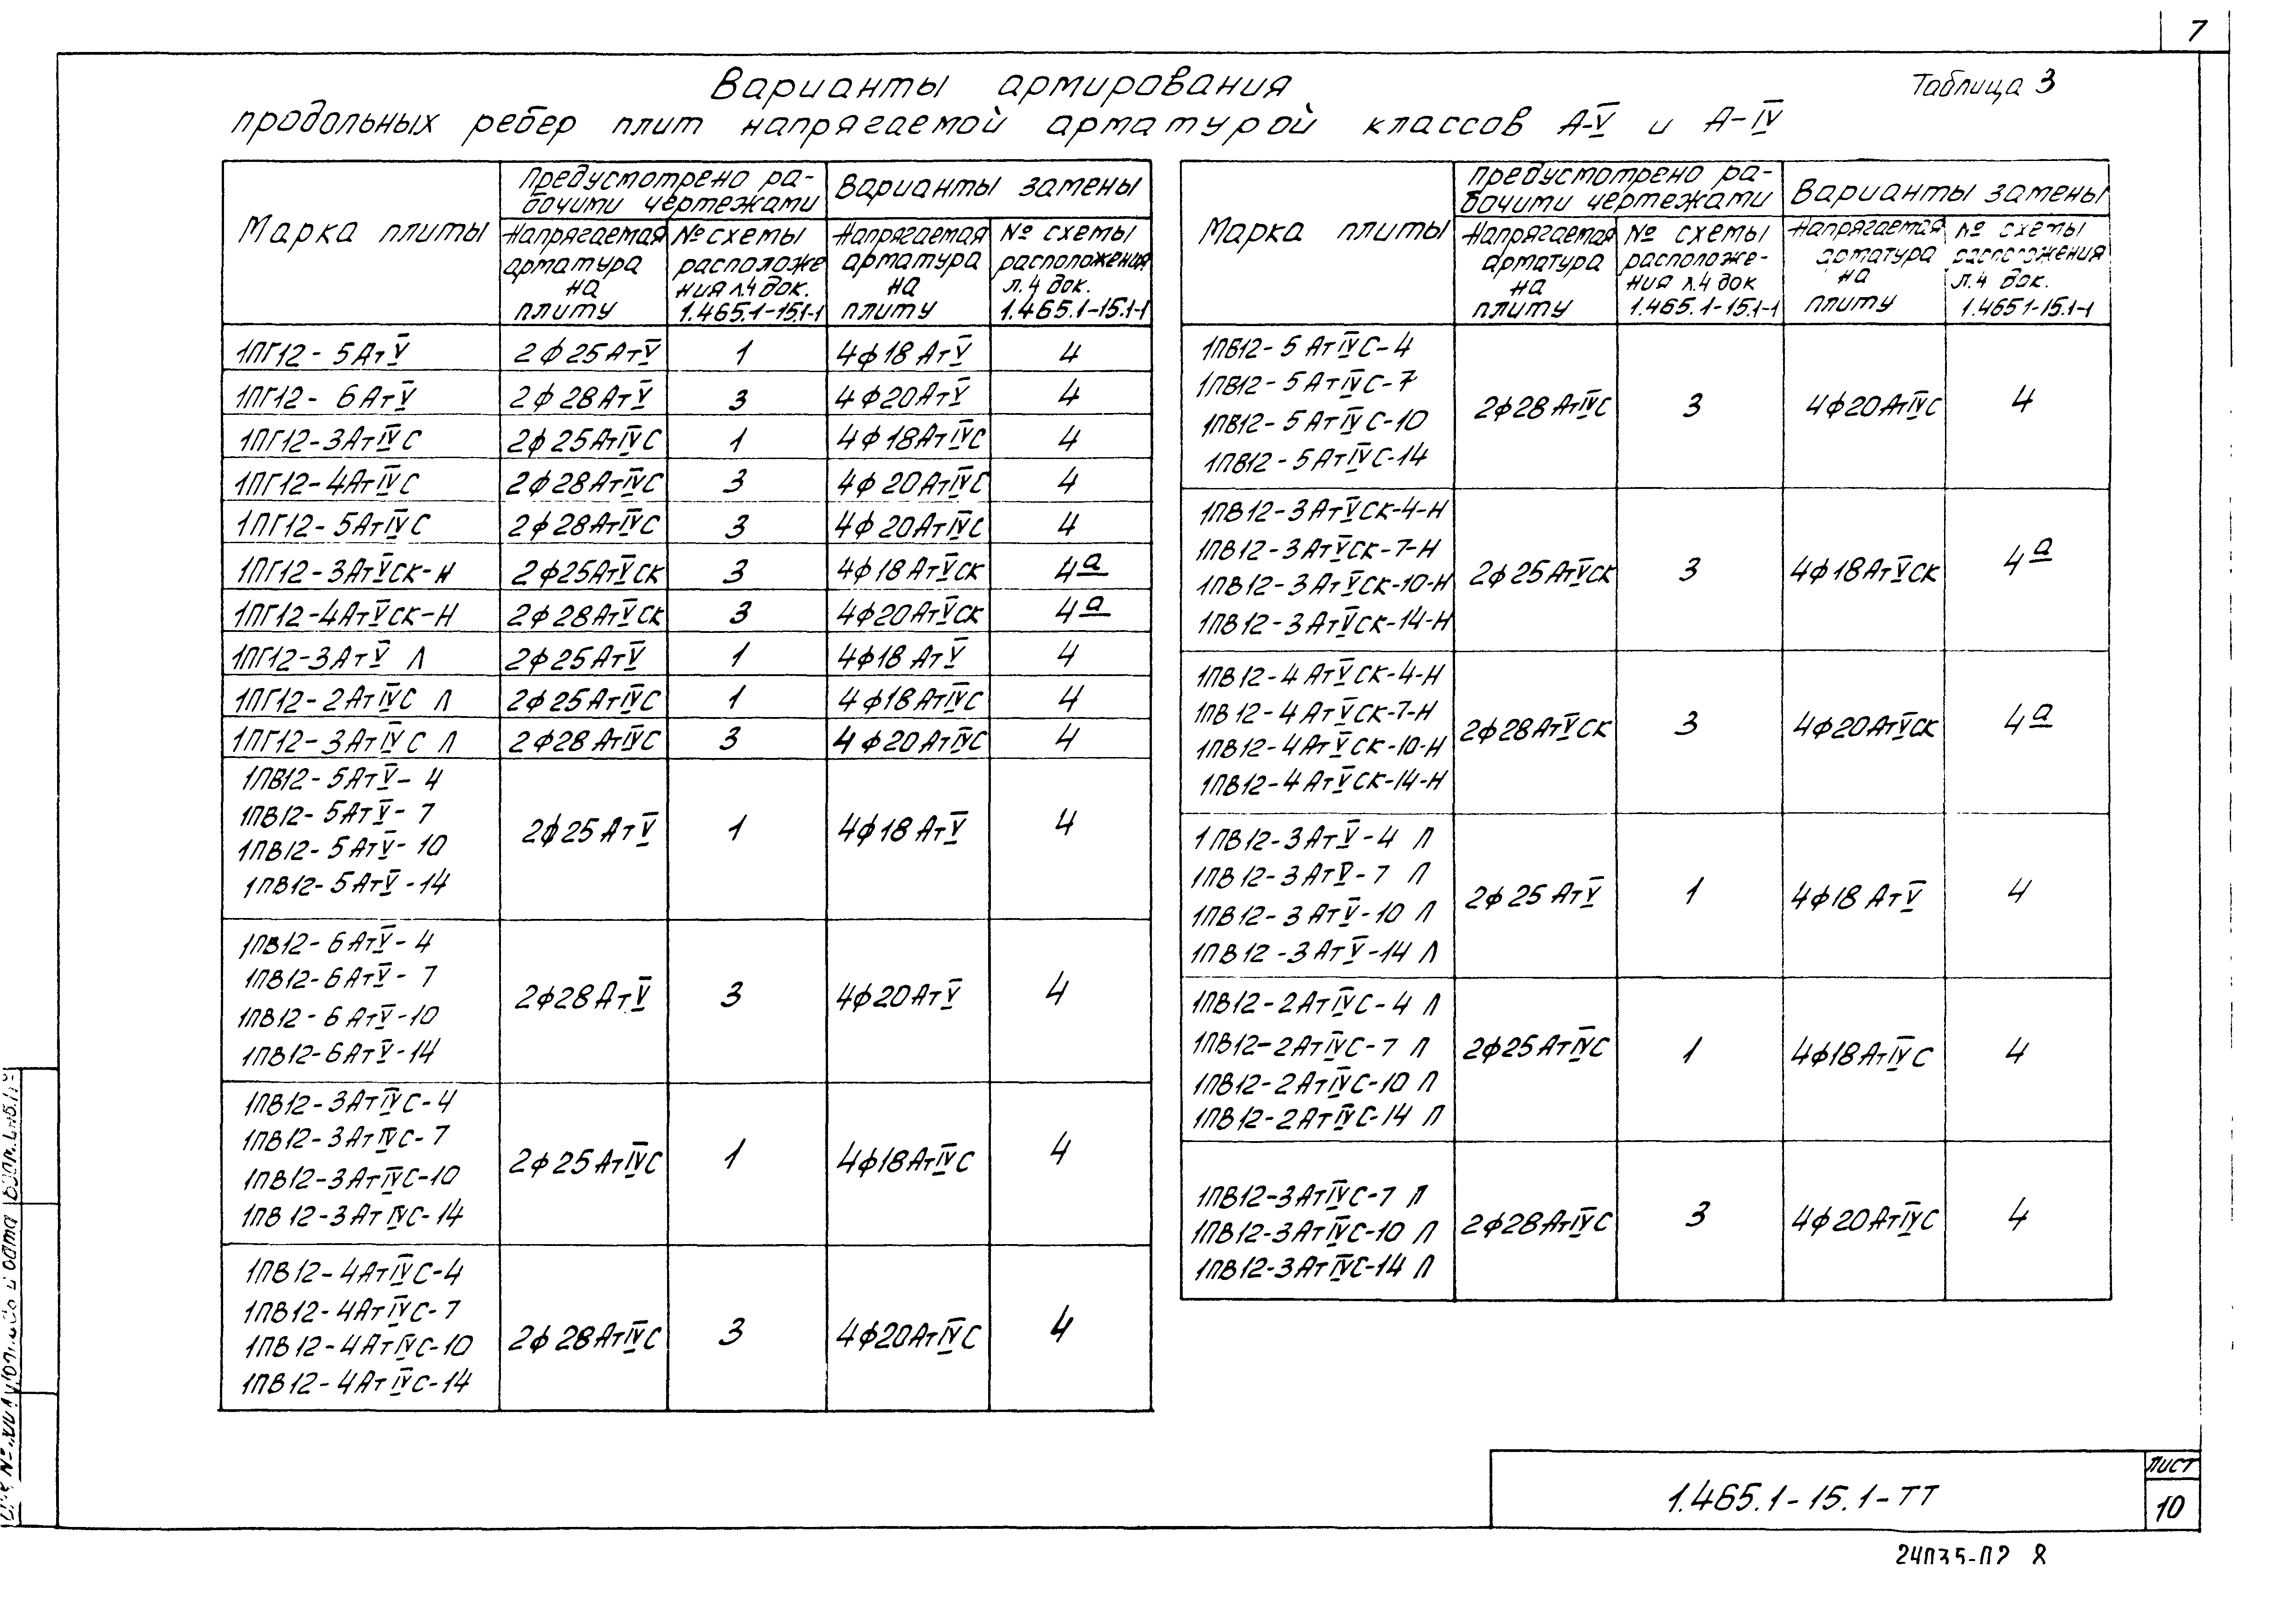 7
Варианты армирования
Таблица 3
продольных ребер плит напрягаемой арматурой классов А-V и А-IV
Марка плиты
Предусмотрено ра-
бочими чертежами
Варианты замены
Напрягаемая
арматура
на
плиту
№ схемы
расположе
ния л.4 док.
1.465.1-15.1-1
Напрягаемая
арматура
на
плиту
№ схемы
расположения
л.4 док.
1.465.1-15.1-1
1ПГ12-5АтV 2ф25АтV 1 4ф18АтV 4
1ПГ12-6АтV 2ф28АтV 3 4ф20АтV 4
1ПГ12-3АтIVС 2ф25АтIVС 1 4ф18АтIVС 4
1ПГ12-4АтIVС 2ф28АтIVС 3 4ф20АтIVС 4
1ПГ12-5АтIVС 2ф28АтIVС 3 4ф20АтIVС 4
1ПГ12-3АтVСК-Н 2ф25АтVСК 3 4ф18АтVСК 4а
1ПГ12-4АтVСК-Н 2ф28АтVСК 3 4ф20АтVСК 4а
1ПГ12-3АтV Л 2ф25АтV 1 4ф18АтV 4
1ПГ12-2АтIVС Л 2ф25АтIVС 1 4ф18АтIVС 4
1ПГ12-3АтIVС Л 2ф28АтIVС 3 4ф20АтIVС 4
1ПВ12-5АтV-4
1ПВ12-5АтV-7
1ПВ12-5АтV-10
1ПВ12-5АтV-14
2ф25АтV 1 4ф18АтV 4
1ПВ12-6АтV-4
1ПВ12-6АтV-7
1ПВ12-6АтV-10
1ПВ12-6АтV-14
2ф28АтV 3 4ф20АтV 4
1ПВ12-3АтIVС-4
1ПВ12-3АтIVС-7
1ПВ12-3АтIVС-10
1ПВ12-3АтIVС-14
2ф25АтIVС 1 4ф18АтIVС 4
1ПВ12-4АтIVС-4
1ПВ12-4АтIVС-7
1ПВ12-4АтIVС-10
1ПВ12-4АтIVС-14
2ф28АтIVС 3 4ф20АтIVС 4
Марка плиты
Предусмотрено ра-
бочими чертежами
Варианты замены
Напрягаемая
арматура
на
плиту
№ схемы
расположе-
ния л.4 док
1.465.1-15.1-1
Напрягаемая
арматура
на
плиту
№ схемы
расположения
л.4 док.
1.4651-15.1-1
1ПВ12-5АтIVС-4
1ПВ12-5АтIVС-7
1ПВ12-5АтIVС-10
1ПВ12-5АтIVС-14
2ф28АтIVС 3 4ф20АтIVС 4
1ПВ12-3АтVСК-4-Н
1ПВ12-3АтVСК-7-Н
1ПВ12-3АтVСК-10-Н
1ПВ12-3АтVСК-14-Н
2ф25АтVСК 3 4ф18АтVСК 4а
1ПВ12-4АтVСК-4-Н
1ПВ12-4АтVСК-7-Н
1ПВ12-4АтVСК-10-Н
1ПВ12-4АтVСК-14-Н
2ф28АтVСК 3 4ф20АтVСК 4а
1ПВ12-3АтV-4 Л
1ПВ12-3АтV-7 Л
1ПВ12-3АтV-10 Л
1ПВ12-3АтV-14 Л
2ф25АтV 1 4ф18АтV 4
1ПВ12-2АтIVС-4 Л
1ПВ12-2АтIVС-7 Л
1ПВ12-2АтIVС-10 Л
1ПВ12-2АтIVС-14 Л
2ф25АтIVС 1 4ф18АтIVС 4
1ПВ12-3АтIVС-7 Л
1ПВ12-3АтIVС-10 Л
1ПВ12-3АтIVС-14 Л
2ф28АтIVС 3 4ф20АтIVС 4
1.465.1-15.1-ТТ
Лист
10
8